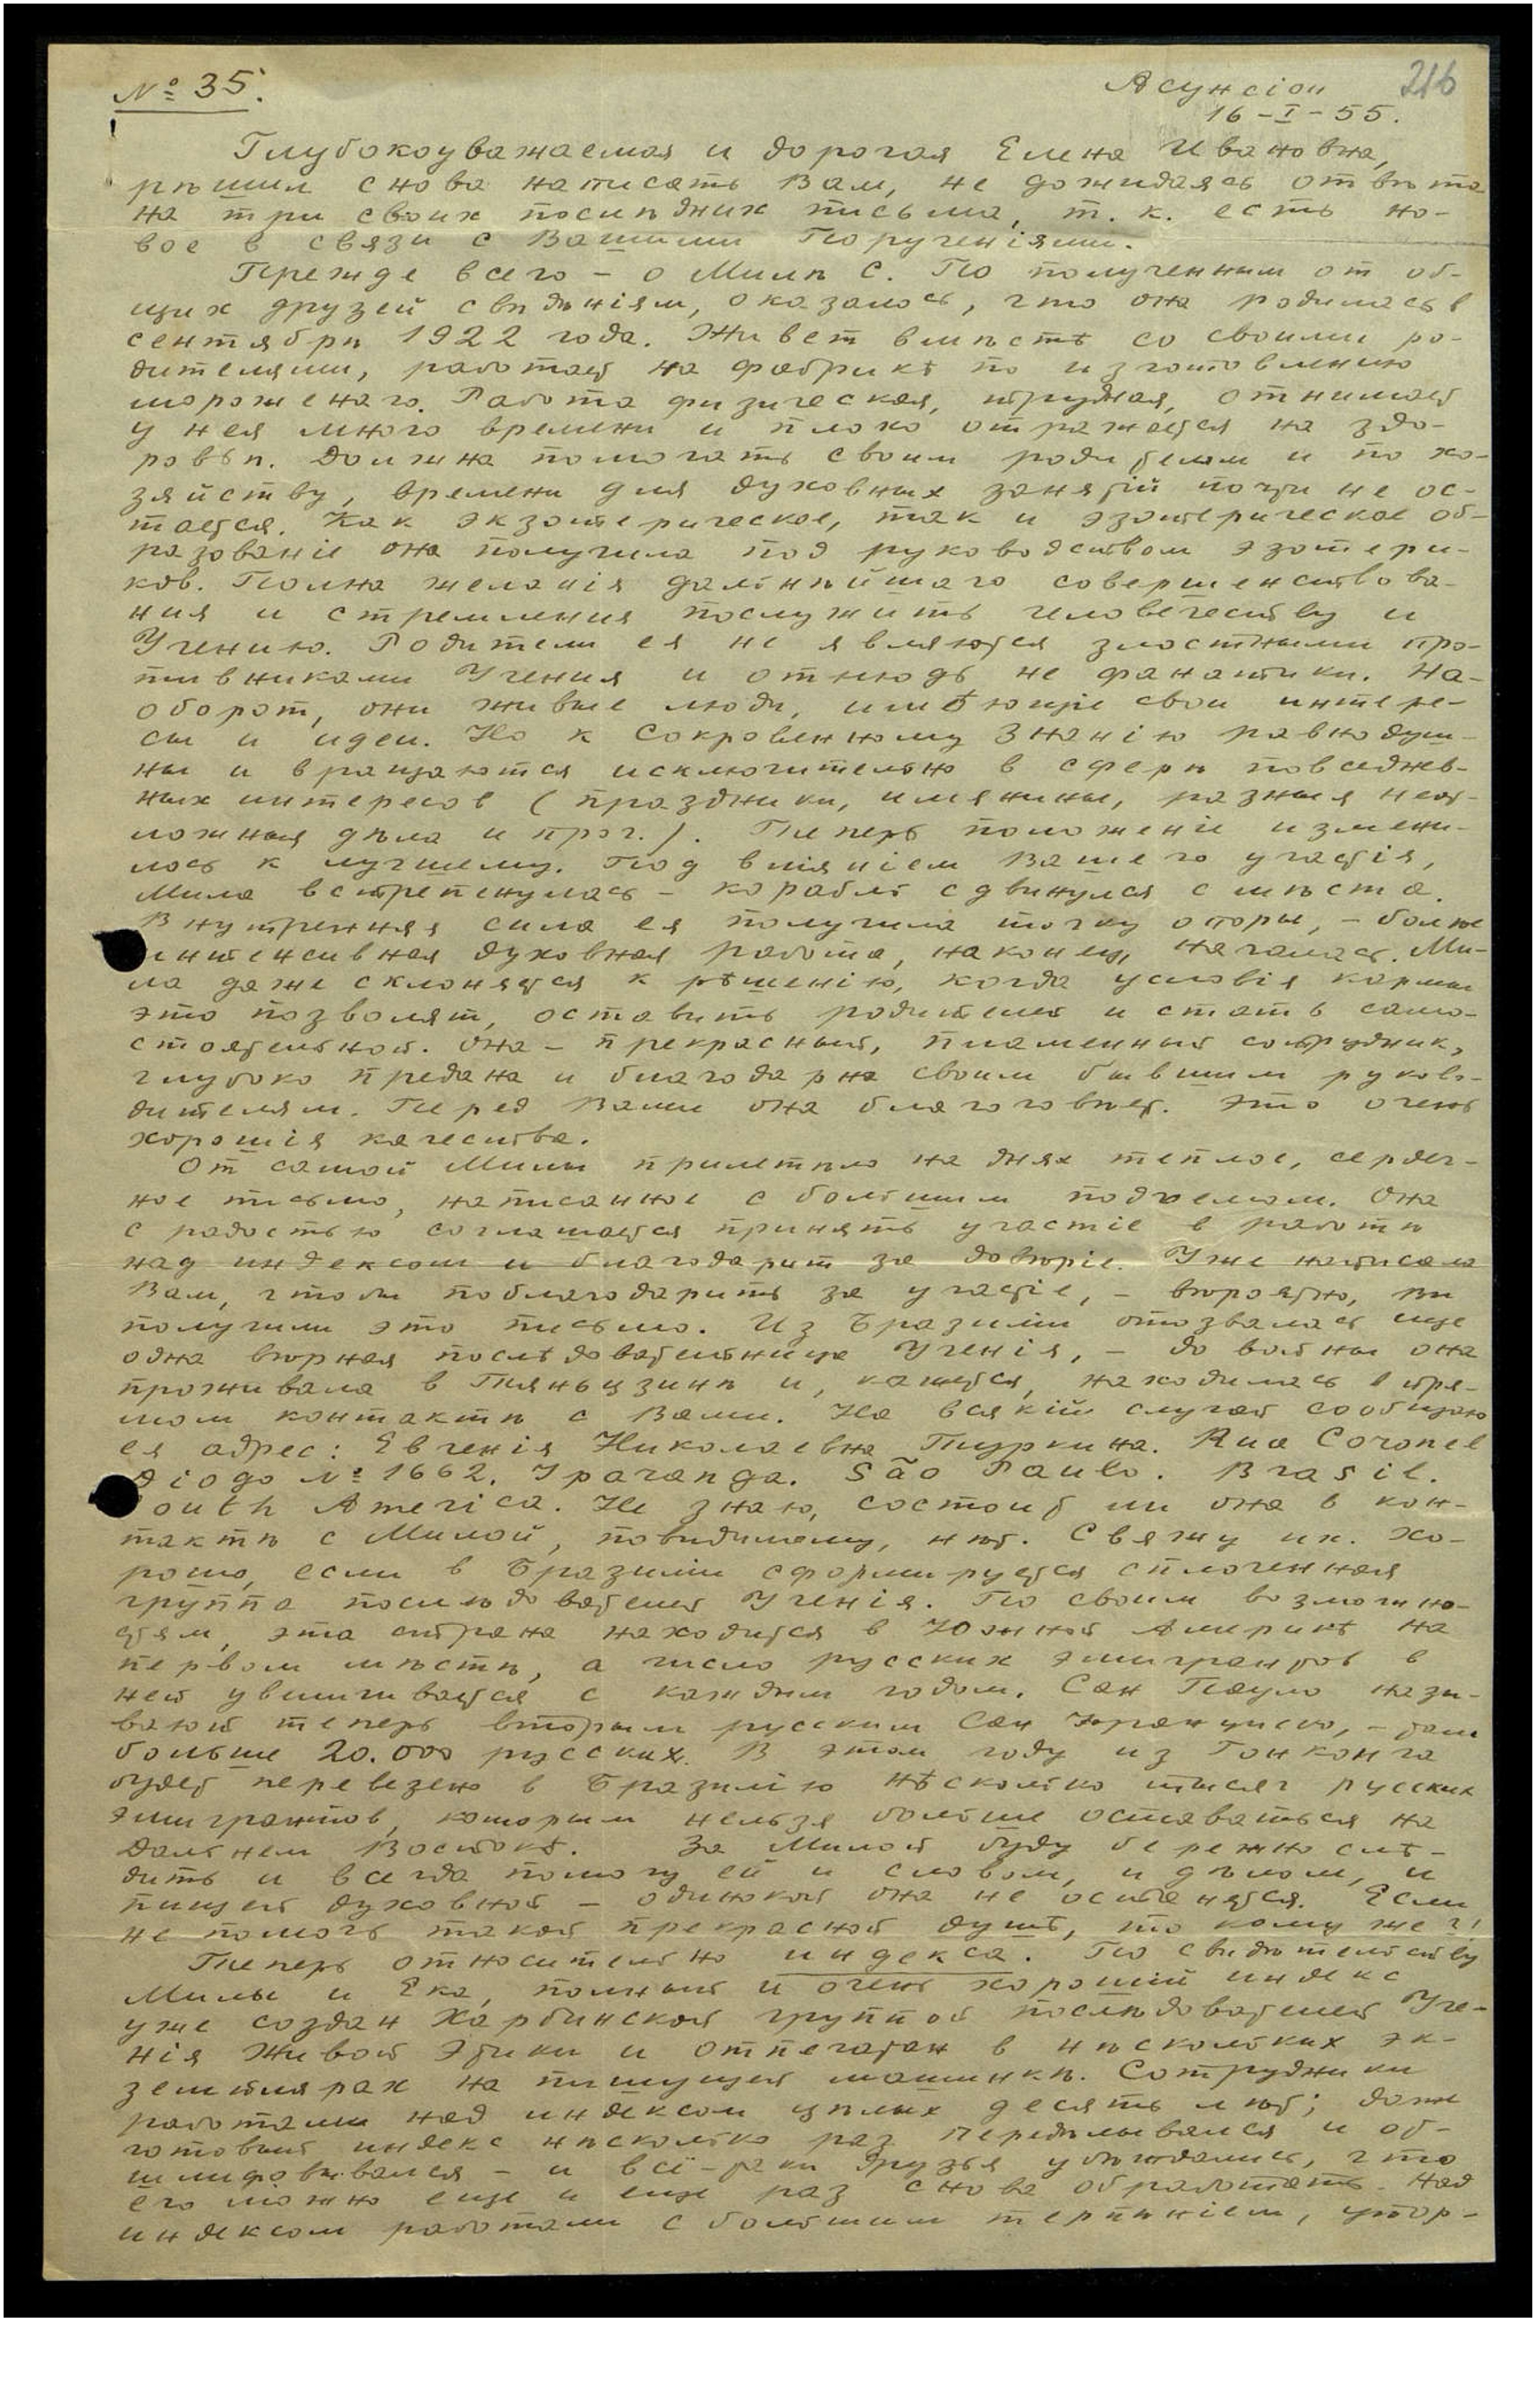 № 35.
Асунсіон 216
16-I-55.
Глубокоуважаемая и дорогая Елена Ивановна,
рѣшил снова написать Вам, не дожидаясь отвѣта
на три своих послѣдних письма, т. к. есть но-
вое в связи с Вашими Порученіями.
Прежде всего – о Милѣ С. По полученным от об-
щих друзей свѣдѣніям, оказалось, что она родилась в
сентябрѣ 1922 года. Живет вмѣстѣ со своими ро-
дителями, работает на фабрикѣ по изготовлению
мороженаго. Работа физическая, трудная, отнимает
у нея много времени и плохо отражается на здо-
ровьѣ. Должна помогать своим родителям и по хо-
зяйству, времени для духовных занятій почти не ос-
тается. Как экзотерическое, так и эзотерическое об-
разованіе она получила под руководством эзотери-
ков. Полна желанія дальнѣйшаго совершенствова-
ния и стремления послужить человечеству и
Учению. Родители ея не являются злостными про-
тивниками Учения и отнюдь не фанатики. На-
оборот, они живые люди, имѣющіе свои интере-
сы и идеи. Но к Сокровенному Знанію равнодуш-
ны и вращаются исключительно в сферѣ повседнев-
ных интересов (праздники, имянины, разныя неот-
ложныя дѣла и проч.). Теперь положеніе измени-
лось к лучшему. Под вліяніем Вашего участія,
Мила встрепенулась – корабль сдвинулся с мѣста.
Внутренняя сила ея получила точку опоры, – более
интенсивная духовная работа, наконец, началась. Ми-
ла даже склоняется к рѣшенію, когда условія кармы
это позволят, оставить родителей и стать само-
стоятельной. Она – прекрасный, пламенный сотрудник,
глубоко предана и благодарна своим бывшим руково-
дителям. Перед Вами она благоговѣет. Это очень
хорошія качества.
От самой Милы прилетѣло на днях теплое, сердеч-
ное письмо, написанное с большим подъемом. Она
с радостью соглашается принять участіе в работѣ
над индексом и благодарит за довѣріе. Уже написала
Вам, чтобы поблагодарить за участіе, – вѣроятно, Вы
получили это письмо. Из Бразиліи отозвалась еще
одна вѣрная послѣдовательница Ученія, – до войны она
проживала в Тяньцзинѣ и, кажется, находилась в пря-
мом контактѣ с Вами. На всякій случай сообщаю
ея адрес: Евгенія Николаевна Туркина. Rua Coronel
Diogo № 1662. Iparanga. São Paulo. Brasil.
South America. Не знаю, состоит ли она в кон-
тактѣ с Милой, повидимому, нѣт. Свяжу их. Хо-
рошо, если в Бразиліи сформируется сплоченная
группа послѣдователей Ученія. По своим возможно-
стям, эта страна находится в Южной Америкѣ на
первом мѣстѣ, а число русских эмигрантов в
ней увеличивается с каждым годом. Сан Пауло назы-
вают теперь вторым русским Сан Франциско, – там
больше 20.000 русских. В этом году из Гонконга
будет перевезено в Бразилію нѣсколько тысяч русских
эмигрантов, которым нельзя больше оставаться на
Дальнем Востокѣ. За Милой буду бережно слѣ-
дить и всегда помогу ей и словом, и дѣлом, и
пищей духовной – одинокой она не останется. Если
не помочь такой прекрасной душѣ, то кому же?!
Теперь относительно индекса. По свидѣтельству
Милы и Ека, полный и очень хорошій индекс
уже создан Харбинской группой послѣдователей Уче-
нія Живой Этики и отпечатан в нѣскольких эк-
земплярах на пишущей машинкѣ. Сотрудники
работали над индексом цѣлых десять лѣт; даже
готовый индекс нѣсколько раз передѣлывался и об-
шлифовывался – и всё-таки друзья убѣждались, что
его можно еще и еще раз снова обработать. Над
индексом работали с большим терпѣніем, упор-